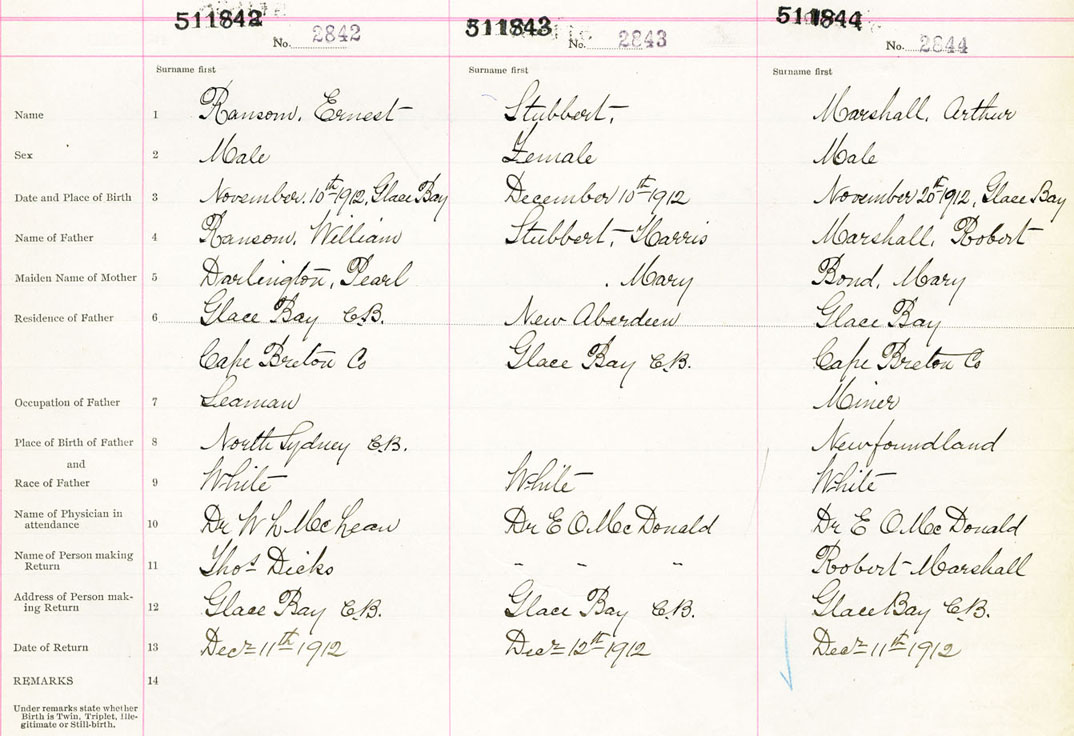 511842 511843 511844
No. 2842 No. 2843 No. 2844
Surname first Surname first Surname first
Name 1 Ransom, Ernest Stubbert, Marshall, Arthur
Sex 2 Male Female Male
Date and Place of Birth 3 November 10th 1912, Glace Bay December 10th 1912 November 20th 1912, Glace Bay
Name of Father 4 Ransom, William Stubbert, Harris Marshall, Robert
Maiden Name of Mother 5 Darlington, Pearl , Mary Bond, Mary
Residence of Father 6 Glace Bay C.B. New Aberdeen Glace Bay
Cape Breton Co Glace Bay C.B. Cape Breton Co
Occupation of Father 7 Seaman Miner
Place of Birth of Father 8 North Sydney C.B. Newfoundland
and
Race of Father 9 White White White
Name of Physician in
attendance 10 Dr W L McLean Dr E O McDonald Dr E O McDonald
Name of Person making
Return 11 Thos Dicks " " " Robert Marshall
Address of Person mak-
ing Return 12 Glace Bay C.B. Glace Bay C.B. Glace Bay C.B.
Date of Return 13 Decr 11th 1912 Decr 12th 1912 Decr 11th 1912
REMARKS 14
Under remarks state whether
Birth is Twin, Triplet, Ille-
gitimate or Still-birth.